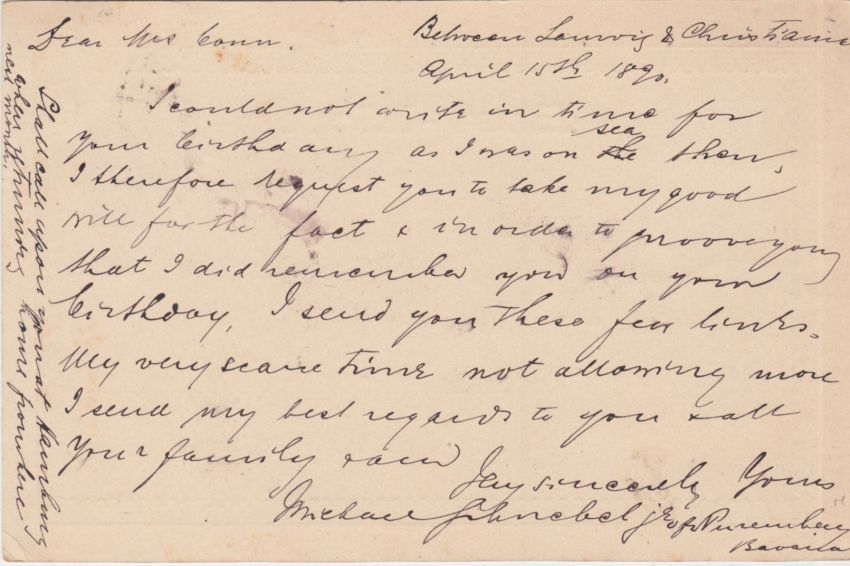 Dear Mrs Conn.
Between Laurvig & Christiania
April 15th 1890.
I could not write in time for
your birthday as I was on the sea then,
I therefore request you to take my good
will for the fact & in order to proove you
that I did remember you on your
birthday, I send you these few lines.
My very scarce time not allowing more
I send my best regards to you & all
your family & am
sincerely Yours
Michael Schnebel jr of Nuremberg
Bavaria
Shall call upon you at Hamburg
when returning home from here
next month.